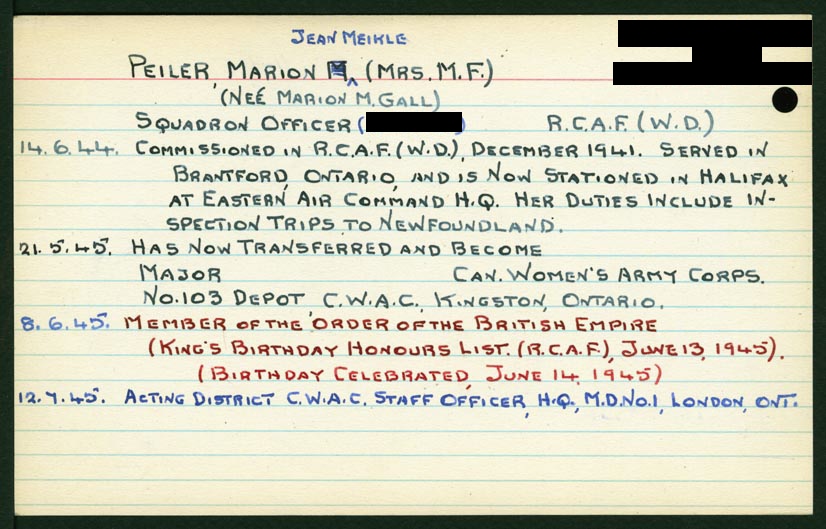 JEAN MEIKLE
PEILER, MARION M. (MRS. M.F.)
(NEÉ MARION M. GALL)
SQUADRON OFFICER ( ) R.C.A.F. (W.D.)
14.6.44. COMMISSIONED IN R.C.A.F. (W.D.), DECEMBER 1941. SERVED IN
BRANTFORD, ONTARIO, AND IS NOW STATIONED IN HALIFAX
AT EASTERN AIR COMMAND H.Q. HER DUTIES INCLUDE IN-
SPECTION TRIPS TO NEWFOUNDLAND.
21.5.45. HAS NOW TRANSFERRED AND BECOME
MAJOR CAN. WOMEN'S ARMY CORPS.
NO. 103 DEPOT C.W.A.C., KINGSTON, ONTARIO.
8.6.45. MEMBER OF THE ORDER OF THE BRITISH EMPIRE
(KING'S BIRTHDAY HONOURS LIST. (R.C.A.F.), JUNE 13, 1945).
(BIRTHDAY CELEBRATED, JUNE 14, 1945)
12.7.45. ACTING DISTRICT C.W.A.C. STAFF OFFICER, H.Q., M.D. NO.1, LONDON, ONT.